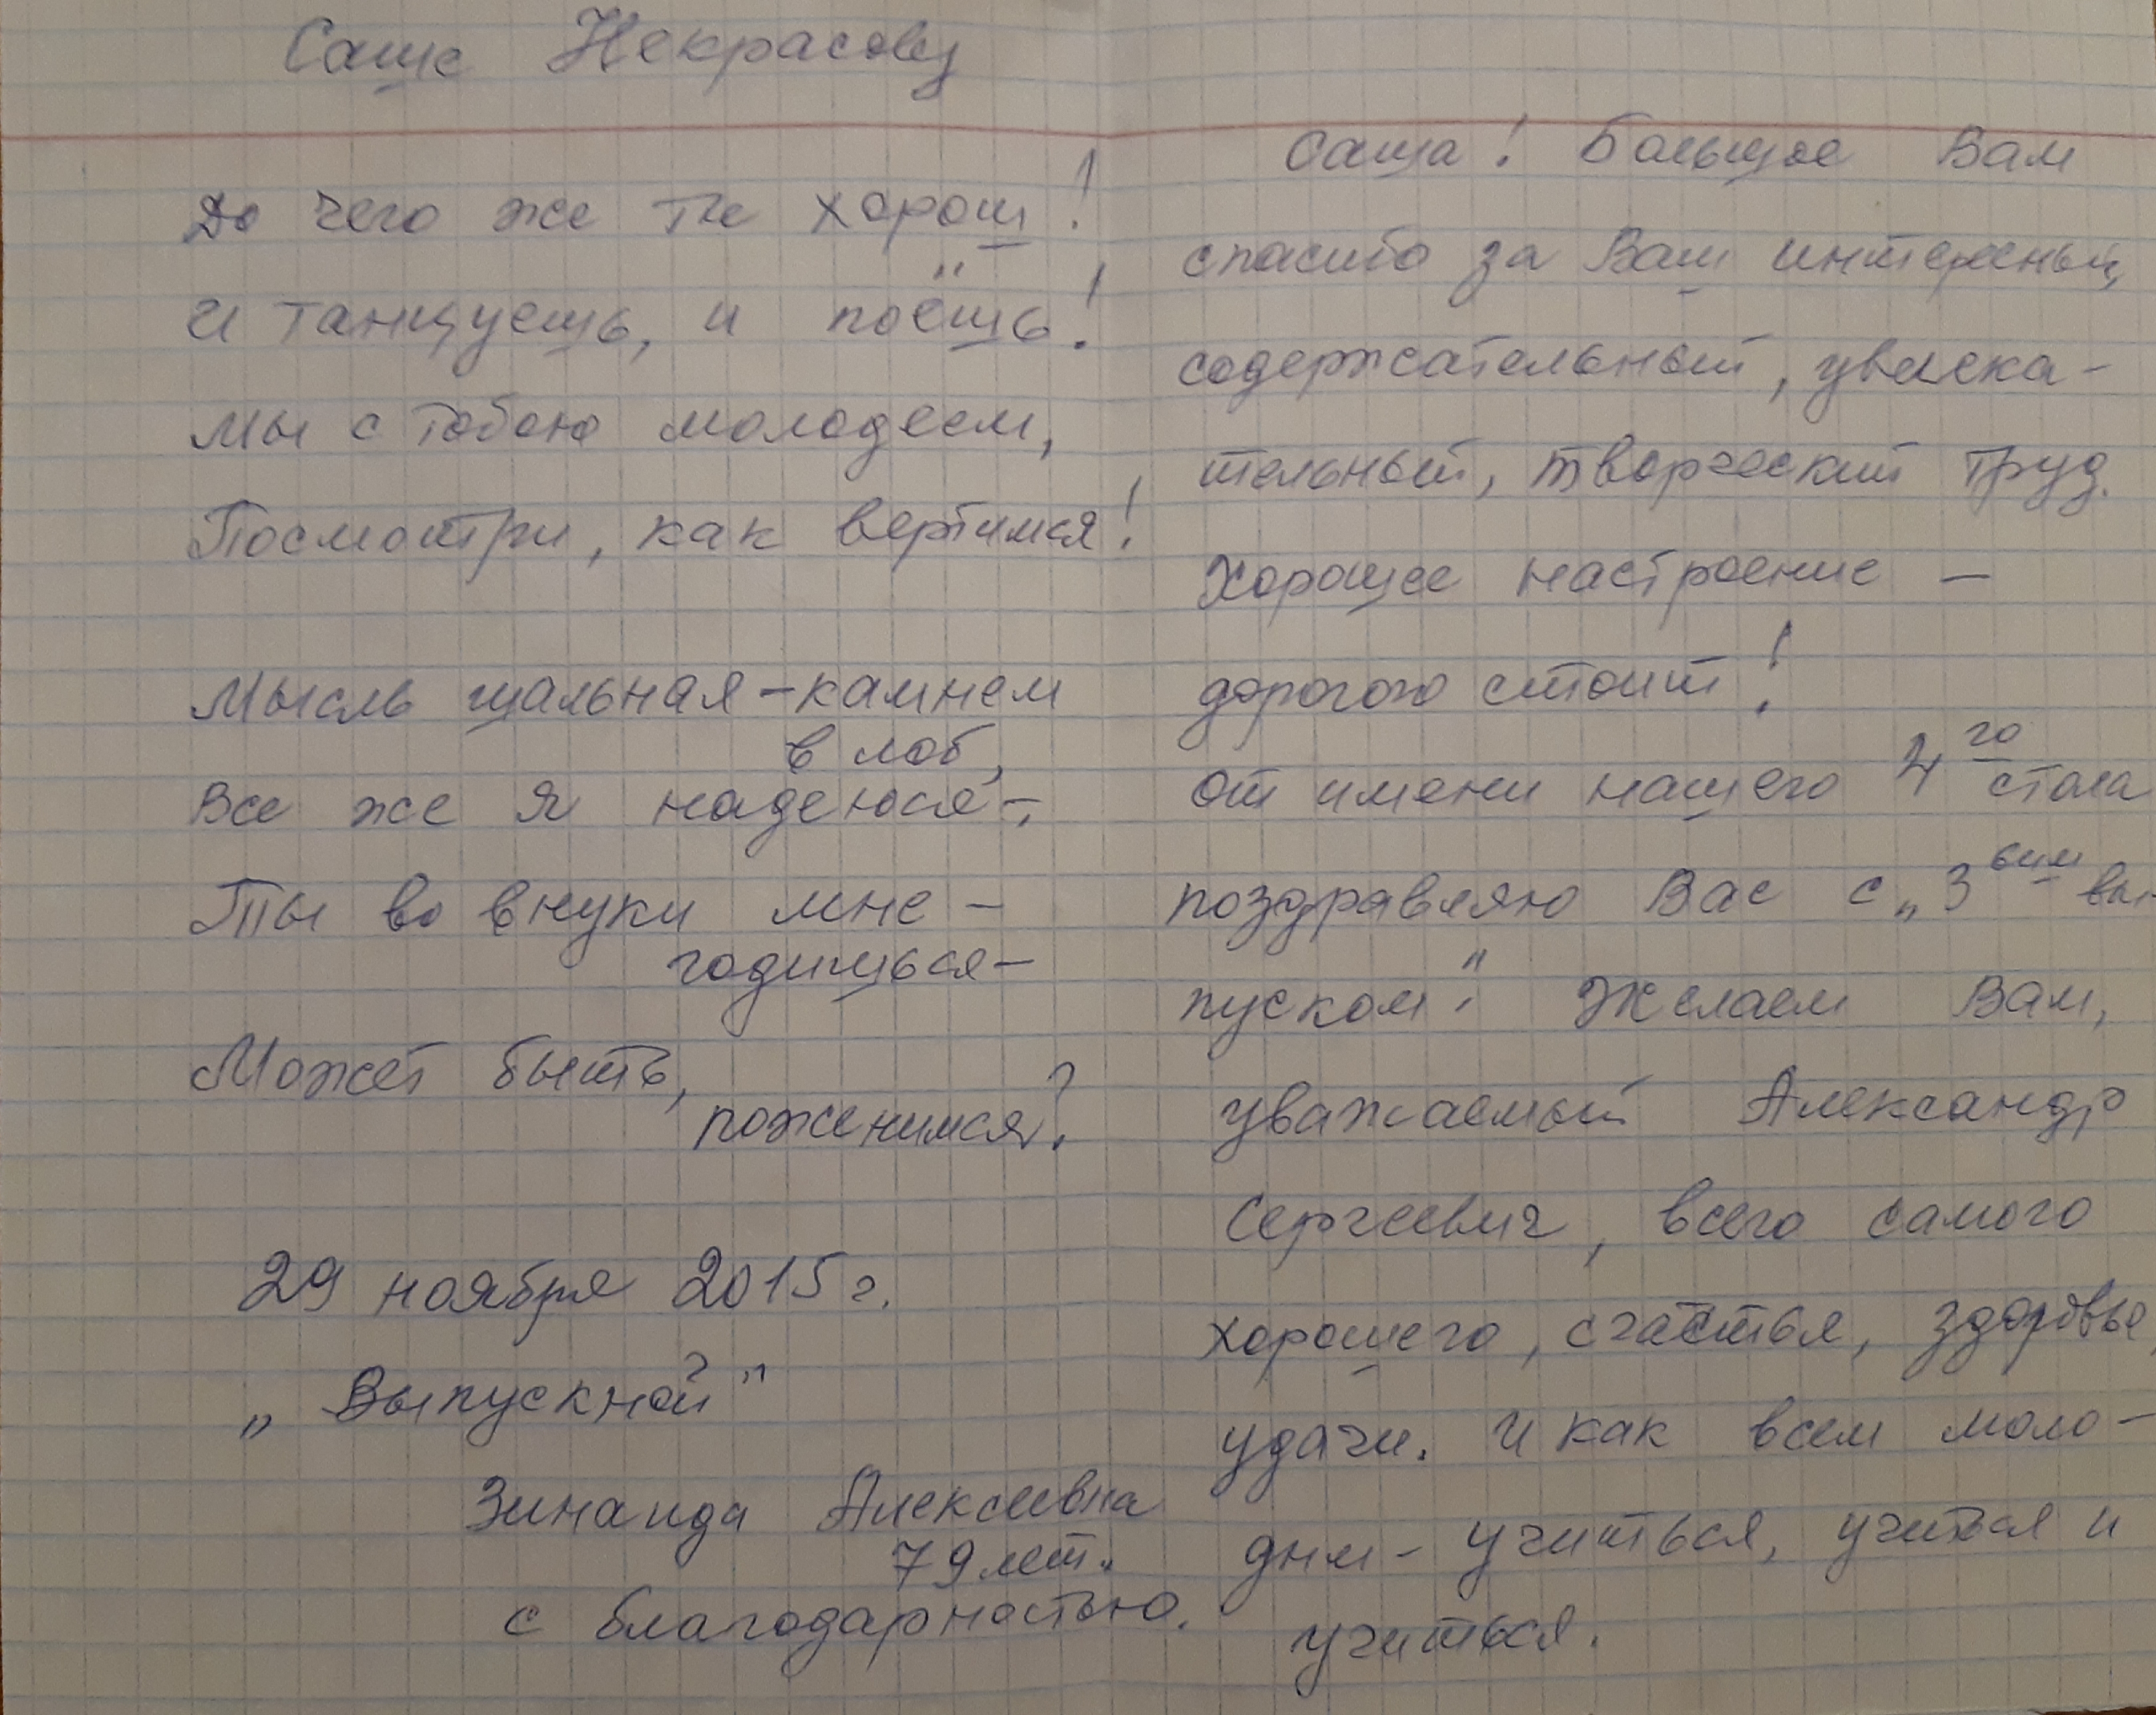 Саше Некрасову
До чего же ты хорош!
и танцуешь, и поёшь!
Мы с тобою молодеем,
Посмотри, как вертимся!
Мысль шальная – камнем
в лоб,
Все же я надеюся –,
Ты во внуки мне –
годишься –
Может быть,
поженимся?
29 ноября 2015 г.
„Выпускной"
Зинаида Алексеевна
79 лет.
с благодарностью.
Саша! Большое Вам
спасибо за Ваш интересный,
содержательный, увлека-
тельный, творческий труд.
Хорошее настроение –
дорогого стоит!
От имени нашего 4го стола
поздравляю Вас с „3-ьим вы-
пуском". Желаем Вам,
уважаемый Александр
Сергеевич, всего самого
хорошего, счастья, здоровье,
удачи. И как всем моло-
дым – учиться, учиться и
учиться.